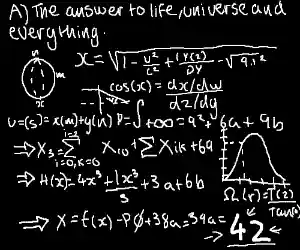 A) The answer to life, universe and
everything.
n
m
x
x = √1 - v²/c² + (y(2)/DY - √9.1²
cos(x) = dx/dw
dz/dy
v=(s)=x(m)+y(n) P=∫+∞=9²+6a+9b
⇒ X₃ Σ i=2 i=0,k=0 X₁₀+ΣXik+69
⇒ H(x)=4x³+1x³/3+3a+6b
Ω(r)=T(2)
⇒ X=f(x)-PØ+38a=39a=
→42←